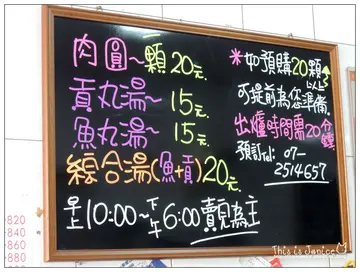 肉圓~一顆20元.
貢丸湯~15元.
魚丸湯~15元.
綜合湯(魚+貢)20元.
早上10:00~下午6:00賣完為主
*如預購20顆以上
可提前為您準備.
出爐時間需20分鐘
預訂Tel: 07-
2514657
820
840
860
880
This is Janice